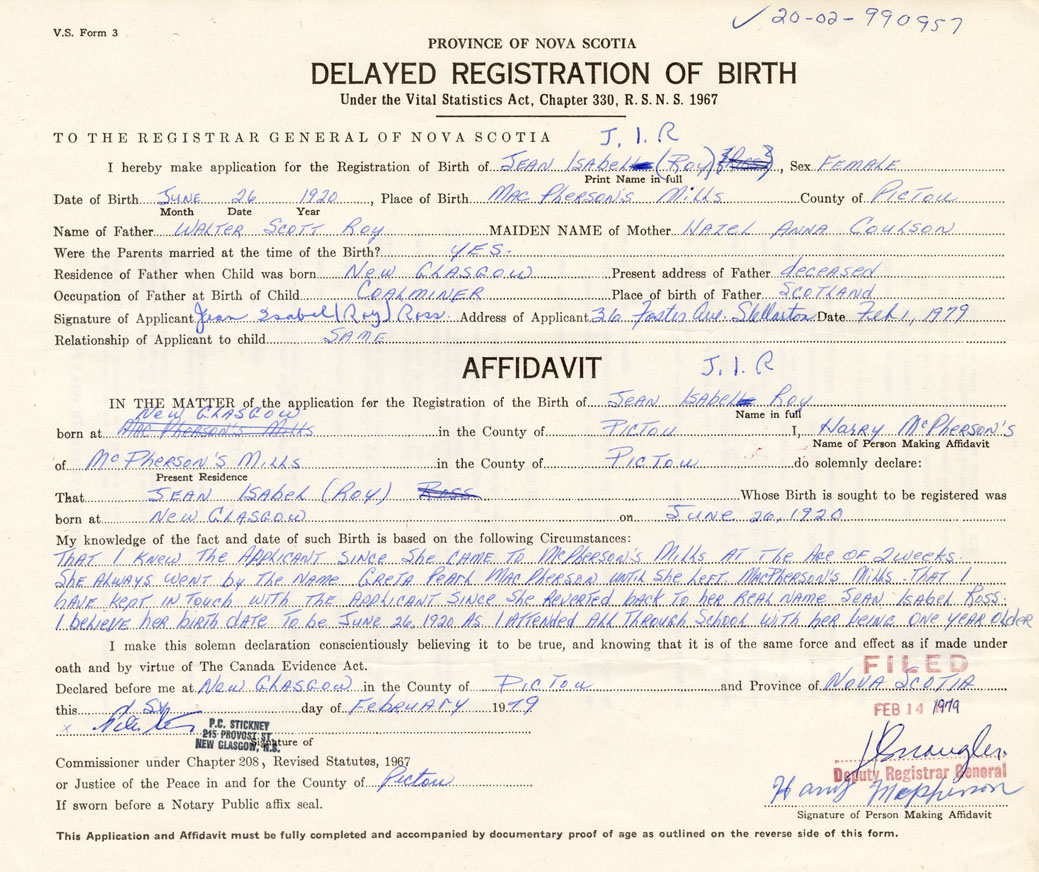 ✓ 20-02-990957
V.S. Form 3
PROVINCE OF NOVA SCOTIA
DELAYED REGISTRATION OF BIRTH
Under the Vital Statistics Act, Chapter 330, R. S. N. S. 1967
TO THE REGISTRAR GENERAL OF NOVA SCOTIA J. I. R
I hereby make application for the Registration of Birth of JEAN ISABEL (ROY) (ROSS), Sex FEMALE
Print Name in full
Date of Birth JUNE 26 1920, Place of Birth MAC PHERSON'S MILLS County of PICTOU
Month Date Year
Name of Father WALTER SCOTT ROY MAIDEN NAME of Mother HAZEL ANNA COULSON
Were the Parents married at the time of the Birth? YES.
Residence of Father when Child was born NEW GLASGOW Present address of Father deceased
Occupation of Father at Birth of Child COALMINER Place of birth of Father SCOTLAND
Signature of Applicant Jean Isabel (Roy) Ross. Address of Applicant 36 Foster Ave. Stellarton Date Feb 1, 1979
Relationship of Applicant to child SAME
AFFIDAVIT J. I. R
IN THE MATTER of the application for the Registration of the Birth of JEAN ISABEL ROY
Name in full
NEW GLASGOW
born at MAC PHERSON'S MILLS in the County of PICTOU I, HARRY MCPHERSON'S
Name of Person Making Affidavit
of MCPHERSON'S MILLS in the County of PICTOU do solemnly declare:
Present Residence
That JEAN ISABEL (ROY) ROSS Whose Birth is sought to be registered was
born at NEW GLASGOW on JUNE 26, 1920
My knowledge of the fact and date of such Birth is based on the following Circumstances:
THAT I KNEW THE APPLICANT SINCE SHE CAME TO MCPHERSON'S MILLS AT THE AGE OF 2 WEEKS.
SHE ALWAYS WENT by THE NAME GRETA PEARL MACPHERSON UNTIL SHE LEFT MACPHERSON'S MILLS. THAT I
HAVE KEPT IN TOUCH WITH THE APPLICANT SINCE SHE REVERTED back TO her REAL NAME JEAN ISABEL ROSS.
I bELIEVE hER bIRTH dATE TO be JUNE 26, 1920 AS I ATTENDED ALL THROUGH SCHOOL WITH hER bEING ONE YEAR OLdER
I make this solemn declaration conscientiously believing it to be true, and knowing that it is of the same force and effect as if made under
oath and by virtue of The Canada Evidence Act.
FILED
Declared before me at NEW GLASGOW in the County of PICTOU and Province of NOVA SCOTIA
this day of FEBRUARY 1979
FEB 14 1979
x
P.C. STICKNEY
215 PROVOST ST.
NEW GLASGOW, N.S.
Signature of
Commissioner under Chapter 208, Revised Statutes, 1967
Deputy Registrar General
or Justice of the Peace in and for the County of Pictou
Harry McPherson
If sworn before a Notary Public affix seal.
Signature of Person Making Affidavit
This Application and Affidavit must be fully completed and accompanied by documentary proof of age as outlined on the reverse side of this form.